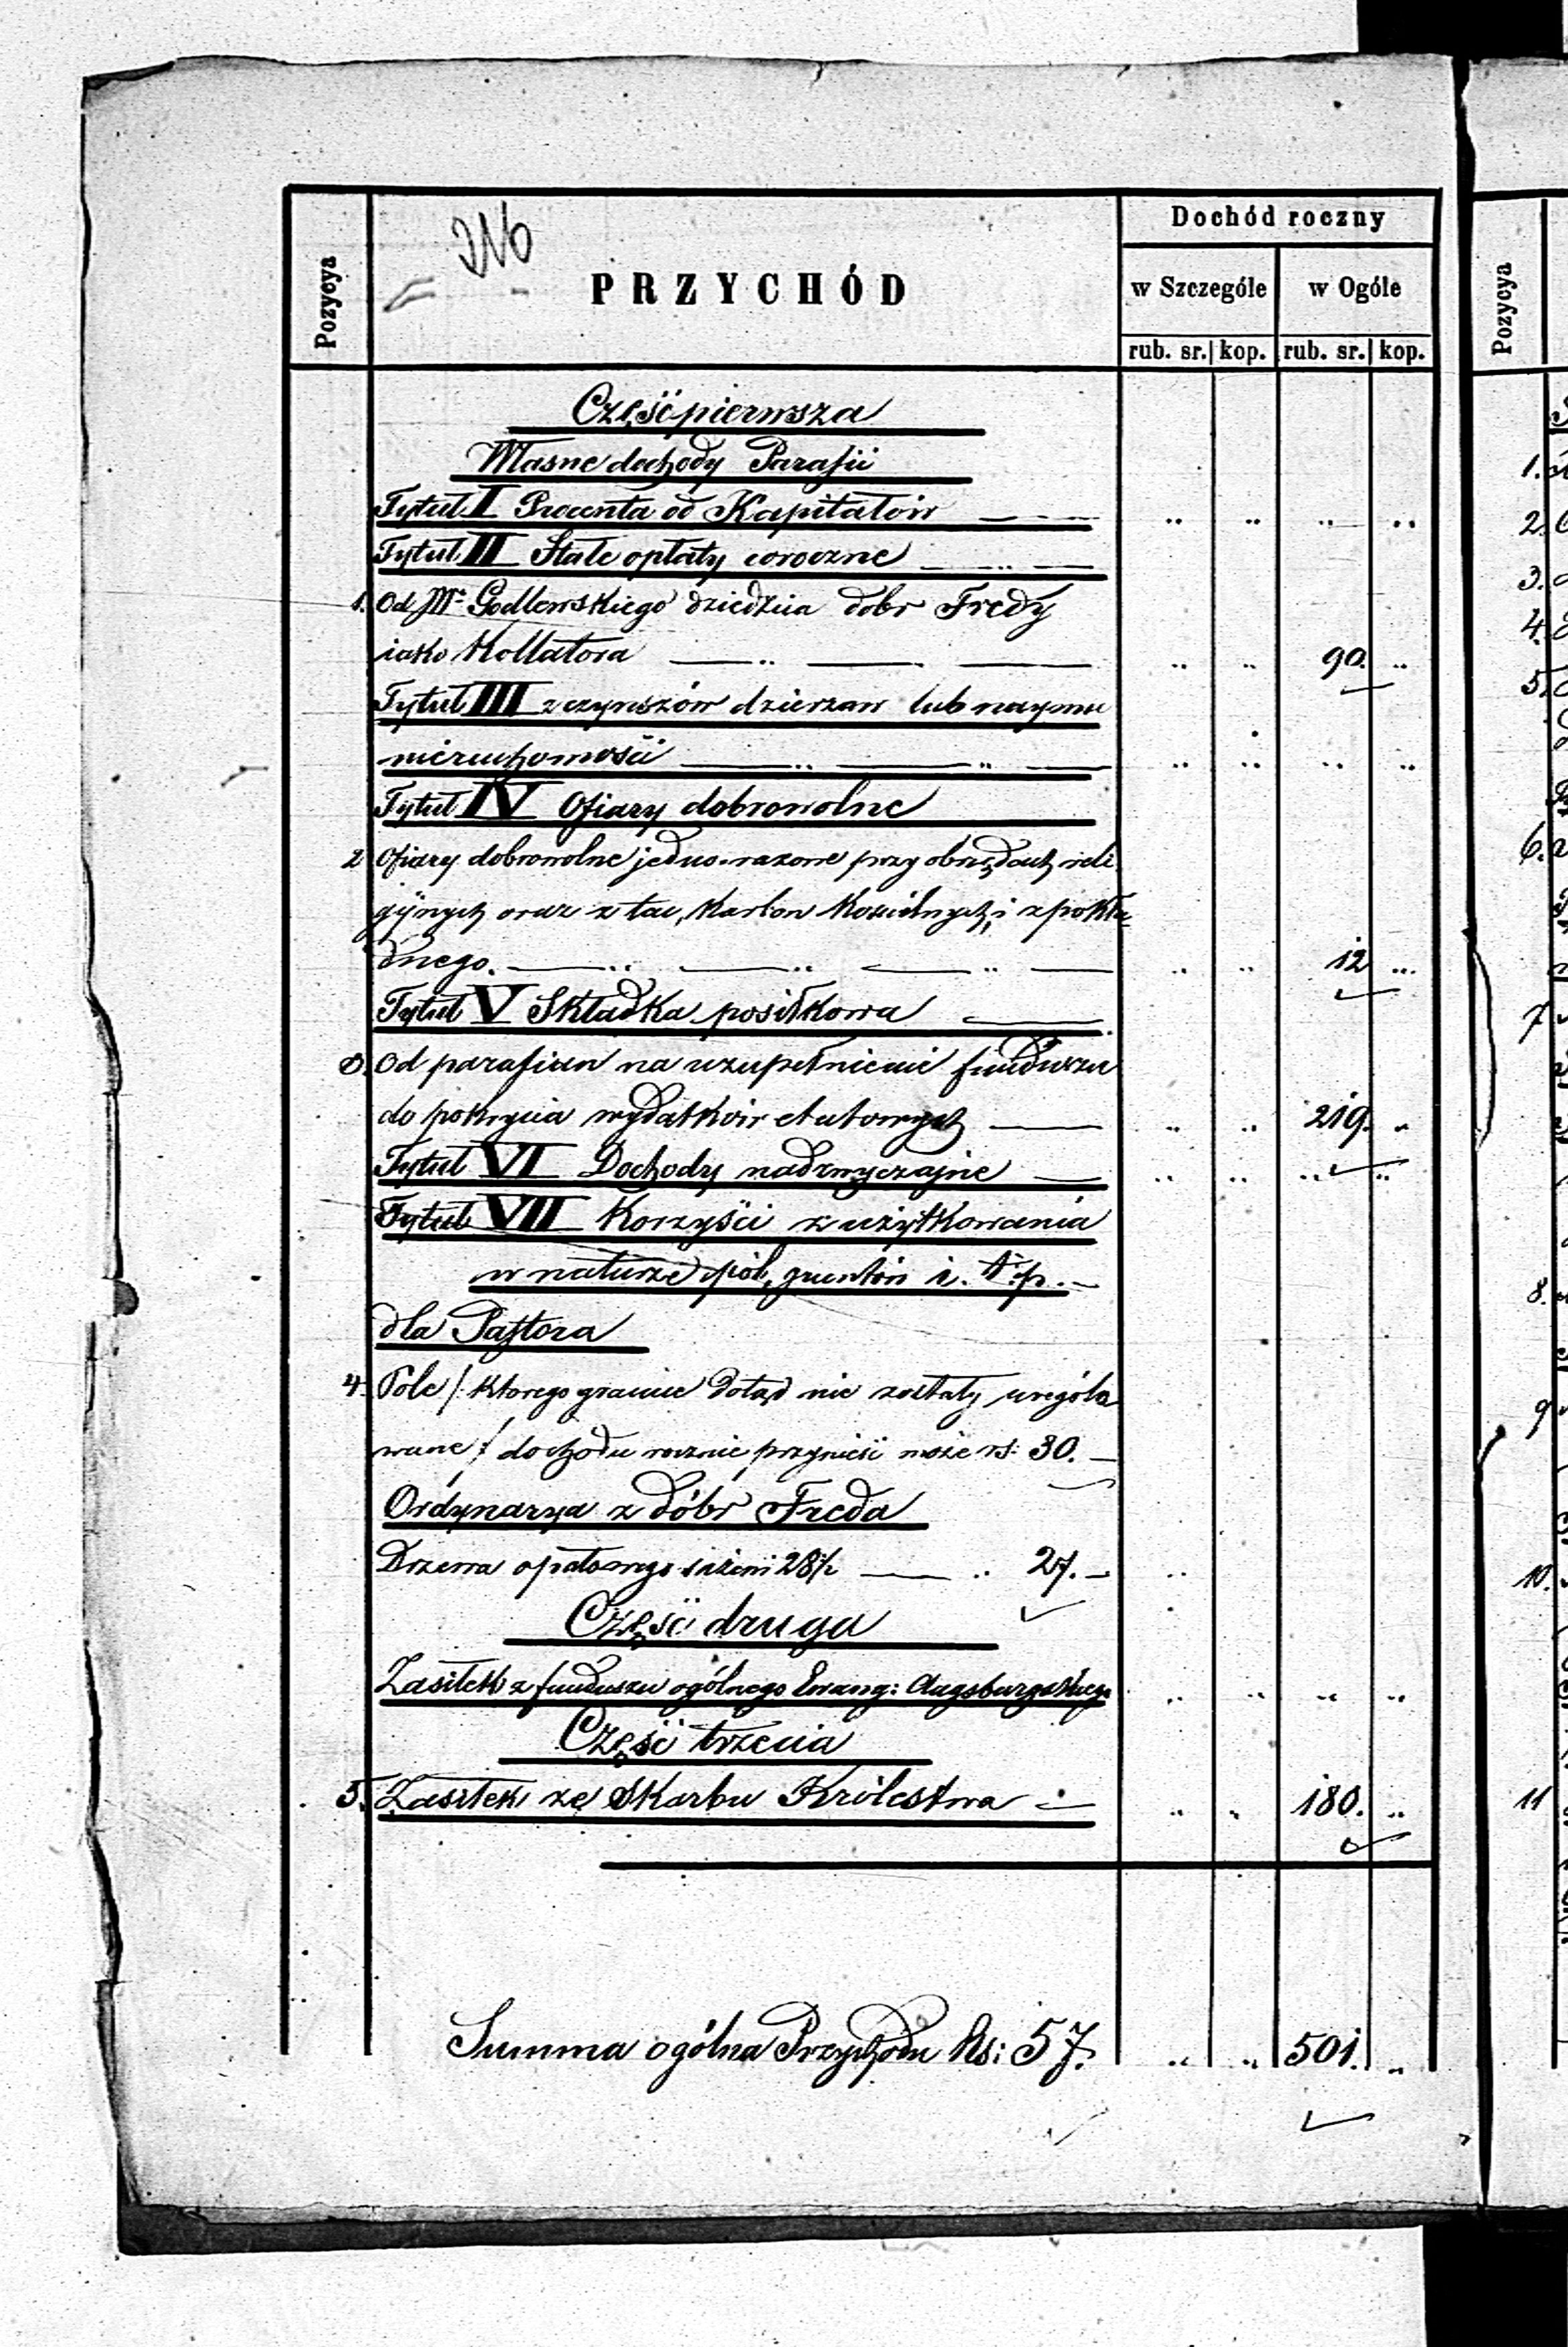 216
Pozycya
PRZYCHÓD
Dochód roczny
w Szczególe w Ogóle
rub. sr. kop. rub. sr. kop.
Część pierwsza
Własne dochody Parafii
Tytuł I Procenta od Kapitałów
Tytuł II Stałe opłaty coroczne
1. Od Godlewskiego dziedzica dobr Fredy
iako Kollatora 90.
Tytuł III z czynszów dzierzaw lub naymu
nieruchomości
Tytuł IV Ofiary dobrowolne
2 Ofiary dobrowolne jedno-razowe przy obrzędach reli
gijnych oraz z tac, Karbon Kościelnych, i z pokła
dnego. 12
Tytuł V Składka posiłkowa
3. Od parafian na uzupełnienie funduszu
do pokrycia wydatków etatowych 219.
Tytuł VI Dochody nadzwyczajne
Tytuł VII Korzyści z użytkowania
w naturze pól, gruntów i. t. p.
dla Pastora
4. Pole /: ktorego granice dotąd nie zostały urególo
wane :/ dochodu rocznie przynieść może rs: 30.
Ordynarya z dóbr Freda
Drzewa opałowego sążeni 28½ 27.
Część druga
Zasiłek z funduszu ogólnego Ewang: Augsburgskiego
Część trzecia
5. Zasiłek ze Skarbu Królestwa 180.
Summa ogólna Przychodu Rs: 57. 501.
Pozycya
1.
2.
3.
4.
5.
6.
7
8.
9
10.
11